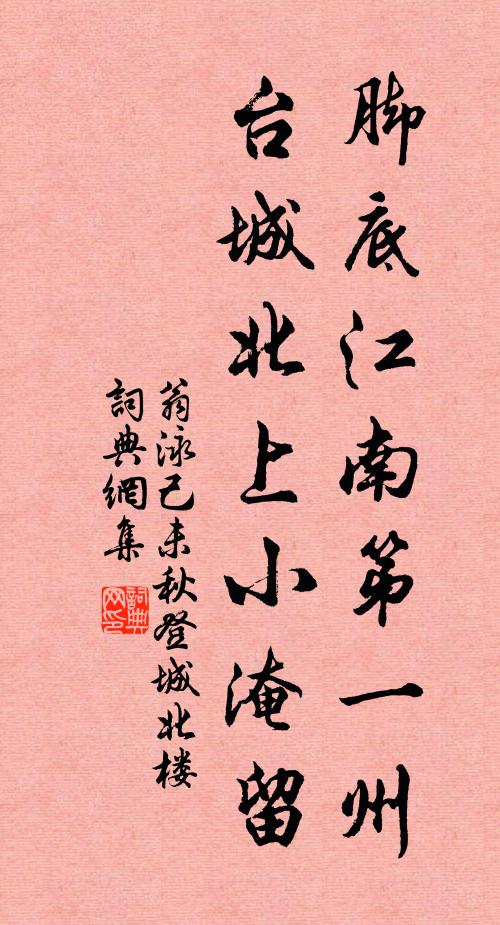 脚底江南第一州
台城北上小淹留
翁泳己未秋登城北楼
詞典網集
詞典网印